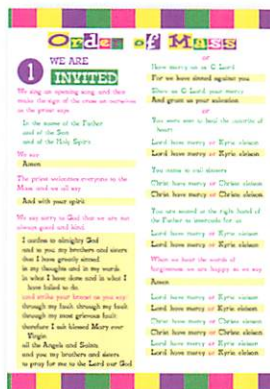 Order of Mass
1
WE ARE
INVITED
We sing an opening song, and then
make the sign of the cross on ourselves
as the priest says
In the name of the Father
and of the Son
and of the Holy Spirit
We say
Amen
The priest welcomes everyone to the
Mass and we all say
And with your spirit
We say sorry to God that we are not
always good and kind
I confess to almighty God
and to you my brothers and sisters
that I have greatly sinned
in my thoughts and in my words
in what I have done and in what I
have failed to do
and strike your breast as you say
through my fault through my fault
through my most grievous fault
therefore I ask blessed Mary ever
Virgin
all the Angels and Saints
and you my brothers and sisters
to pray for me to the Lord our God
or
Have mercy on us O Lord
For we have sinned against you
Show us O Lord your mercy
And grant us your salvation
or
You were sent to heal the contrite of
heart
Lord have mercy or Kyrie eleison
Lord have mercy or Kyrie eleison
You came to call sinners
Christ have mercy or Christe eleison
Christ have mercy or Christe eleison
You are seated at the right hand of
the Father to intercede for us
Lord have mercy or Kyrie eleison
Lord have mercy or Kyrie eleison
When we hear the words of
forgiveness we are happy as we say
Amen
Lord have mercy or Kyrie eleison
Lord have mercy or Kyrie eleison
Christ have mercy or Christe eleison
Christ have mercy or Christe eleison
Lord have mercy or Kyrie eleison
Lord have mercy or Kyrie eleison